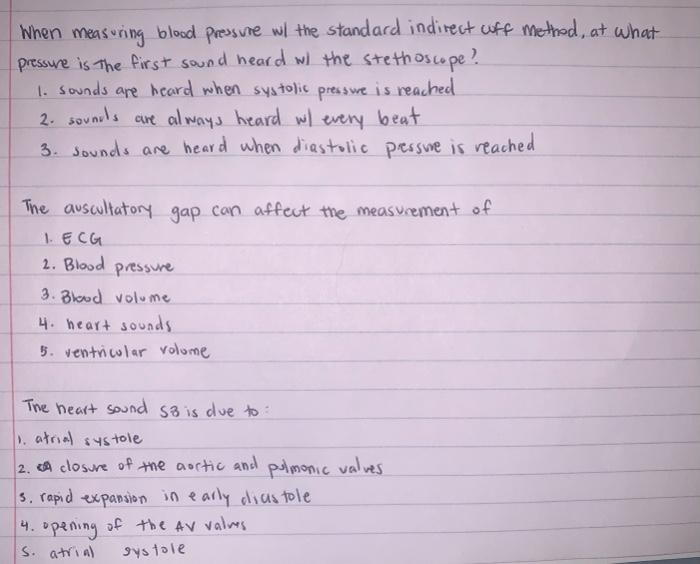 When measuring blood pressure w/ the standard indirect cuff method, at what
pressure is the first sound heard w/ the stethoscope?
1. sounds are heard when systolic pressure is reached
2. sounds are always heard w/ every beat
3. sounds are heard when diastolic pressure is reached
The auscultatory gap can affect the measurement of
1. ECG
2. Blood pressure
3. Blood volume
4. heart sounds
5. ventricular volume
The heart sound S3 is due to:
1. atrial systole
2. closure of the aortic and pulmonic valves
3. rapid expansion in early diastole
4. opening of the AV valves
5. atrial systole